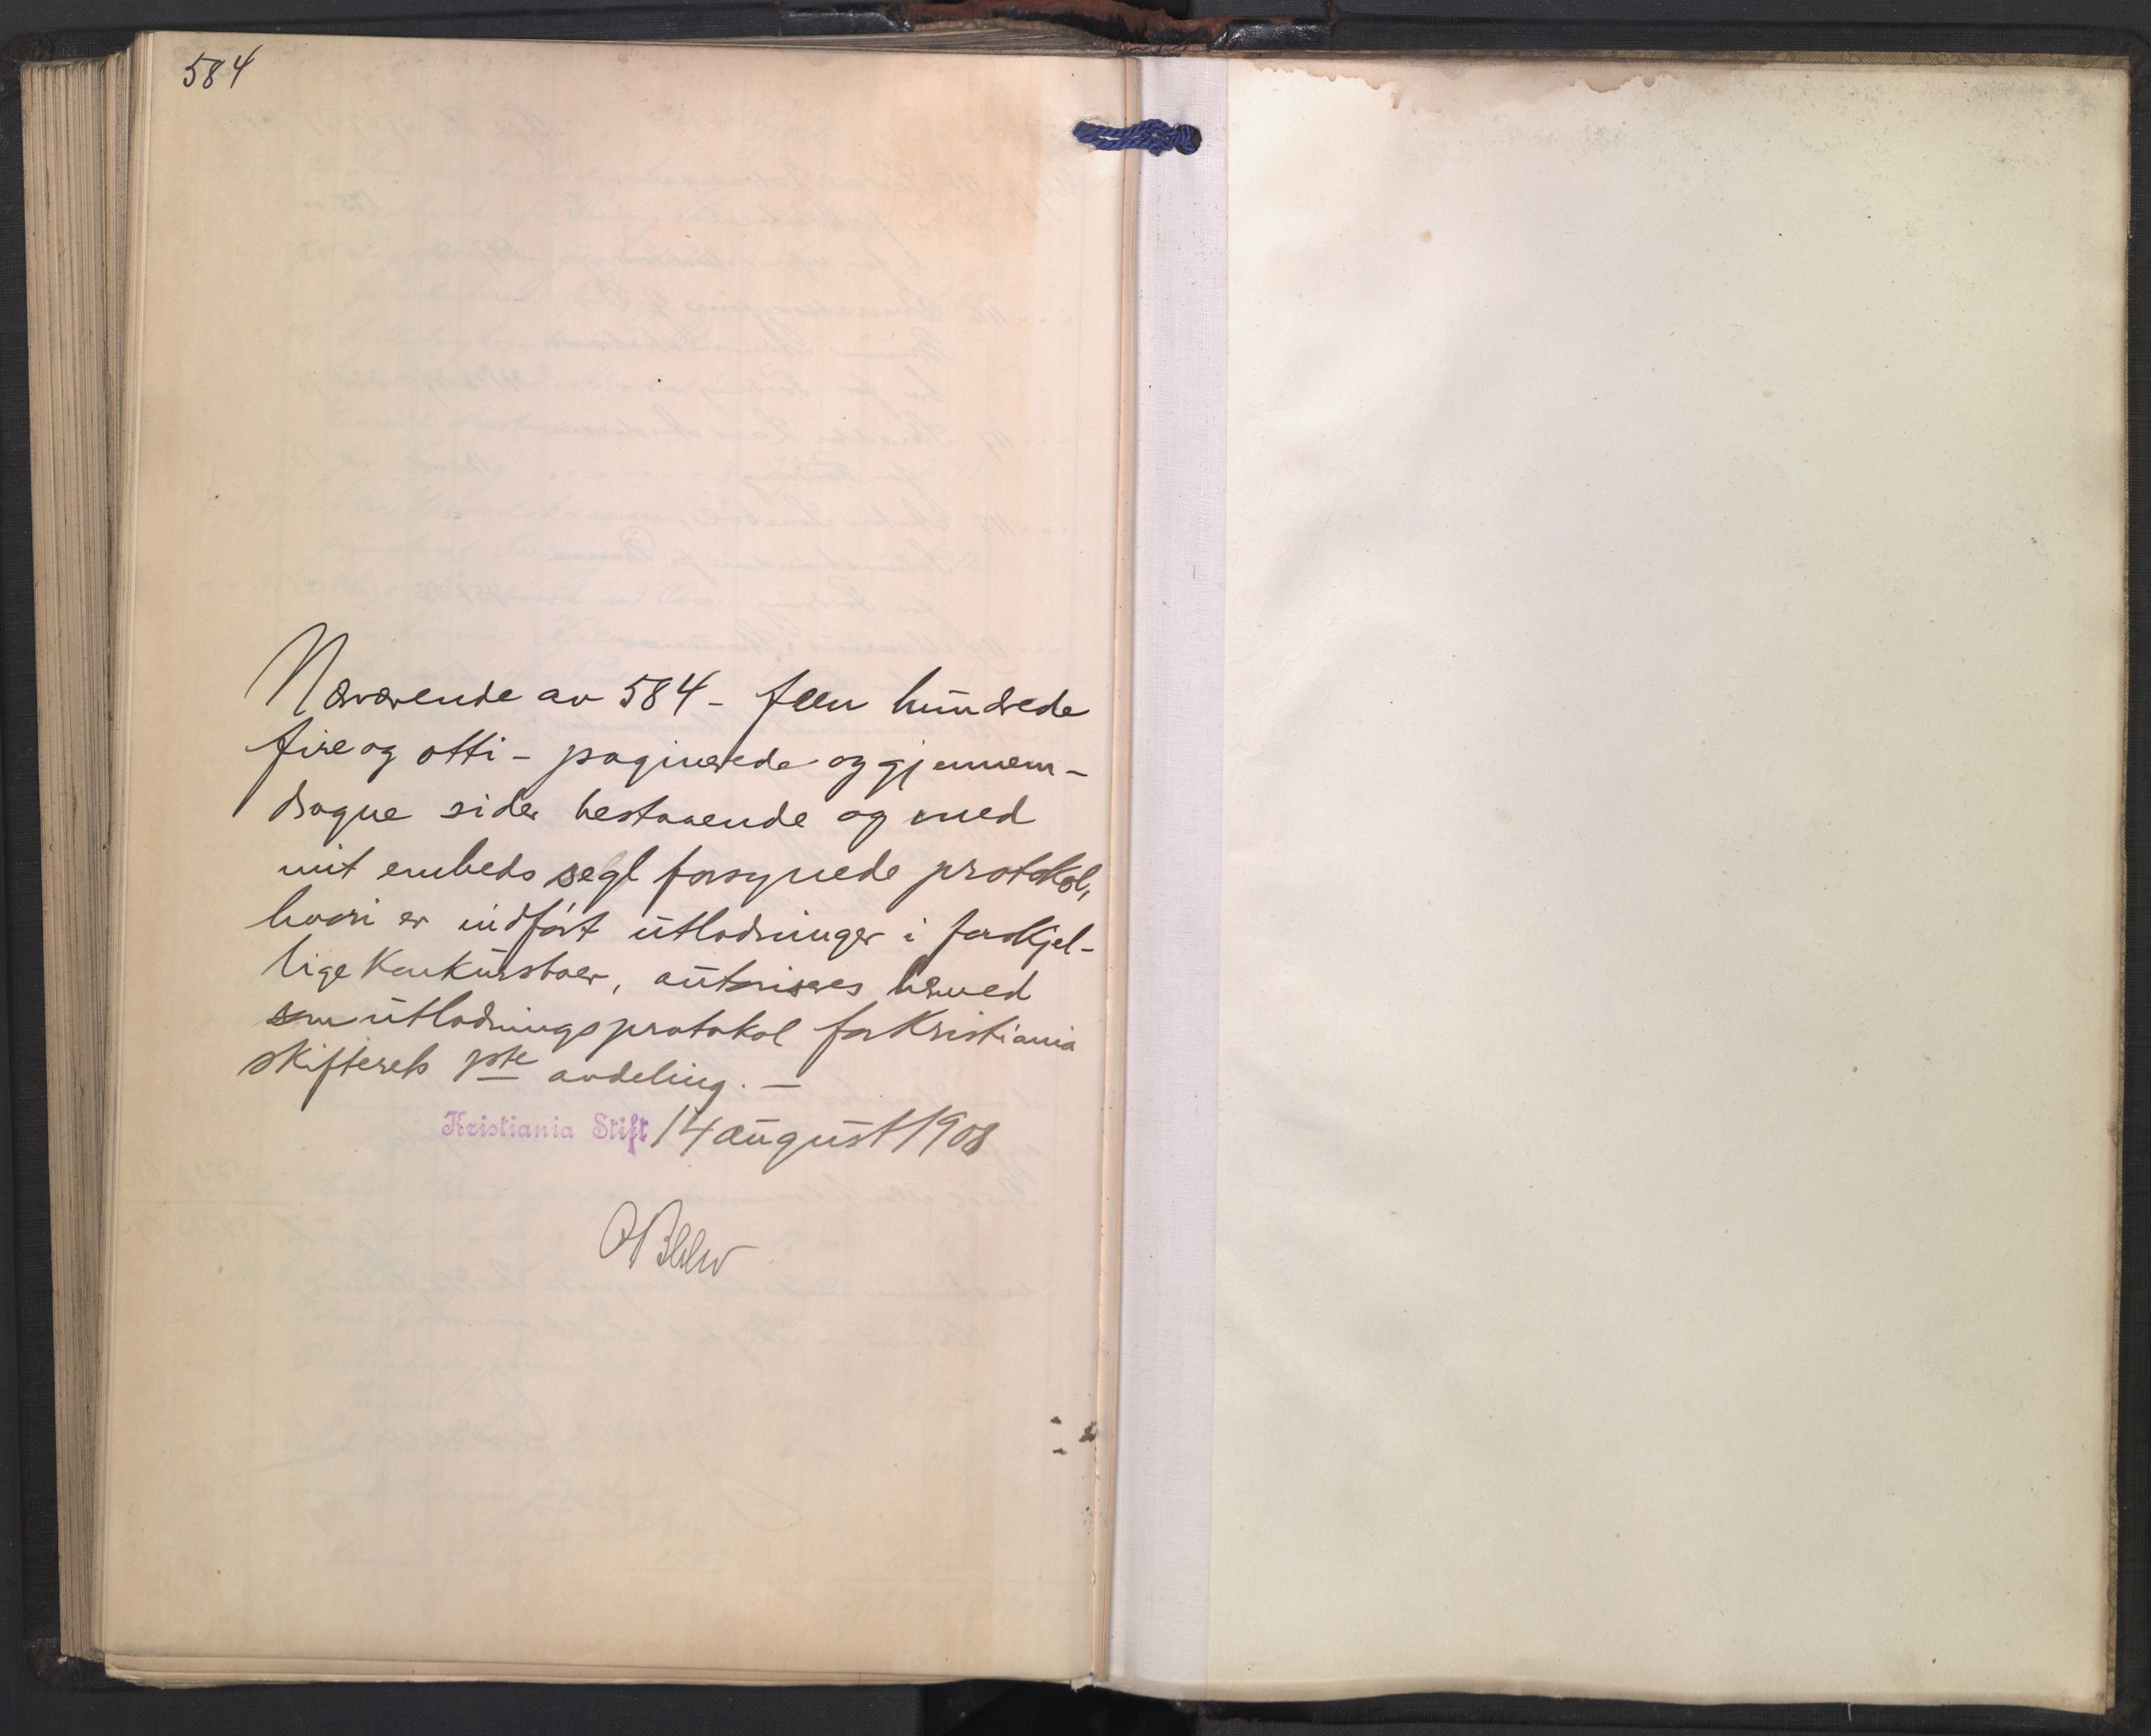 584
Nærværende av 584 - fem hundrede
fire og otti - paginerede og gjennem-
dragne sider bestaaende og med
mit embeds segl forsynede protokol,
hvori er indført utlodninger i forskjel-
lige Konkursboer, autoriseres herved
som utlodningsprotokol for Kristiania
skifterets 1ste avdeling. -
Kristiania Stift 14 august 1908